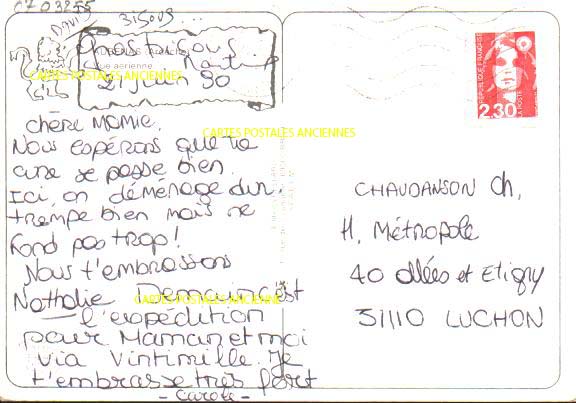 CZ 03255
DAVID
BISOUS...
21 juin 90
CARTES POSTALES ANCIENNES
vue aérienne
CARTES POSTALES ANCIENNES
chère MAMIE,
Nous espérons que ta
cure se passe bien.
Ici, on déménage dur,
trempe bien mais ne
fond pas trop!
Nous t'embrassons
Nathalie Demain c'est
CARTES POSTALES ANCIENNES
l'expédition
pour Maman et moi
via Vintimille. Je
t'embrasse très fort
- Carole -
REPUBLIQUE FRANÇAISE
2,30
LA POSTE
CHAUDANSON Ch,
H. Métropole
40 allées et Etigny
31110 LUCHON